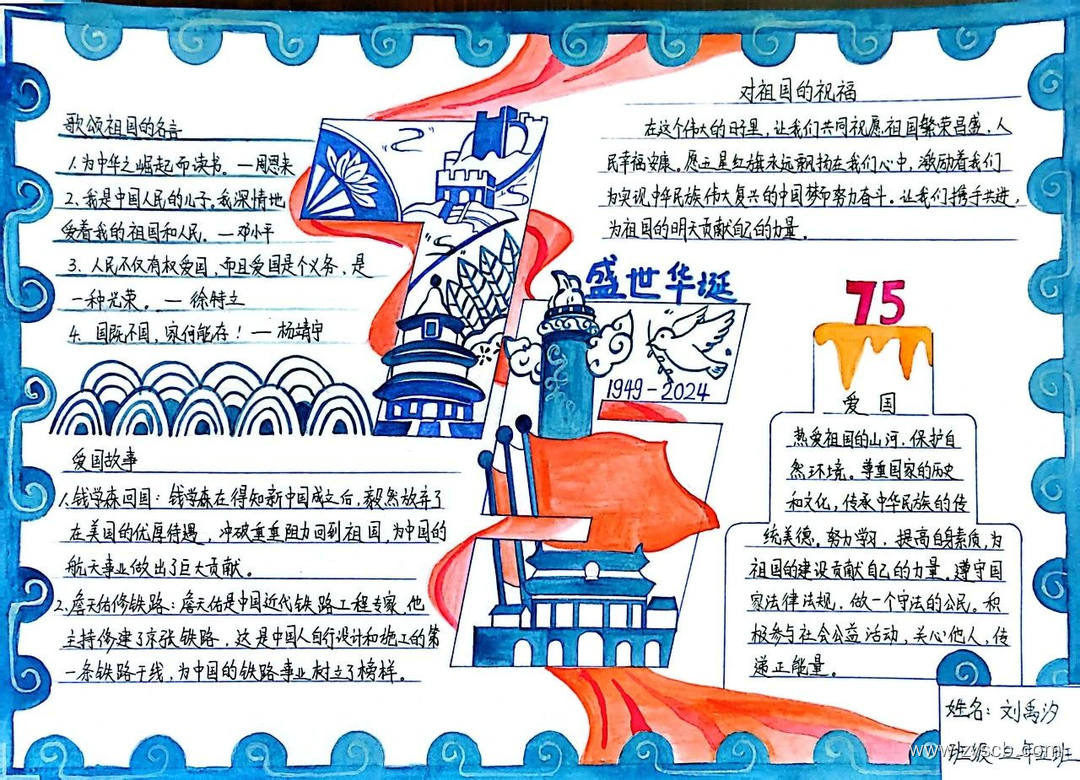 歌颂祖国的名言
1.为中华之崛起而读书。—周恩来
2.我是中国人民的儿子。我深情地
爱着我的祖国和人民。—邓小平
3. 人民不仅有权爱国,而且爱国是个义务,是
一种光荣。— 徐特立
4. 国既不国,家何能存!— 杨靖宇
对祖国的祝福
在这个伟大的日子里,让我们共同祝愿祖国繁荣昌盛,人
民幸福安康。愿五星红旗永远飘扬在我们心中,激励着我们
为实现中华民族伟大复兴的中国梦而努力奋斗。让我们携手共进,
为祖国的明天贡献自己的力量。
盛世华诞
1949-2024
75
爱国
热爱祖国的山河,保护自
然环境。尊重国家的历史
和文化,传承中华民族的传
统美德。努力学习,提高自身素质,为
祖国的建设贡献自己的力量。遵守国
家法律法规,做一个守法的公民。积
极参与社会公益活动,关心他人,传
递正能量。
爱国故事
1.钱学森回国:钱学森在得知新中国成立后,毅然放弃了
在美国的优厚待遇,冲破重重阻力回到祖国,为中国的
航天事业做出了巨大贡献。
2.詹天佑修铁路:詹天佑是中国近代铁路工程专家,他
主持修建了京张铁路,这是中国人自行设计和施工的第
一条铁路干线,为中国的铁路事业树立了榜样。
姓名:刘禹汐
班级: